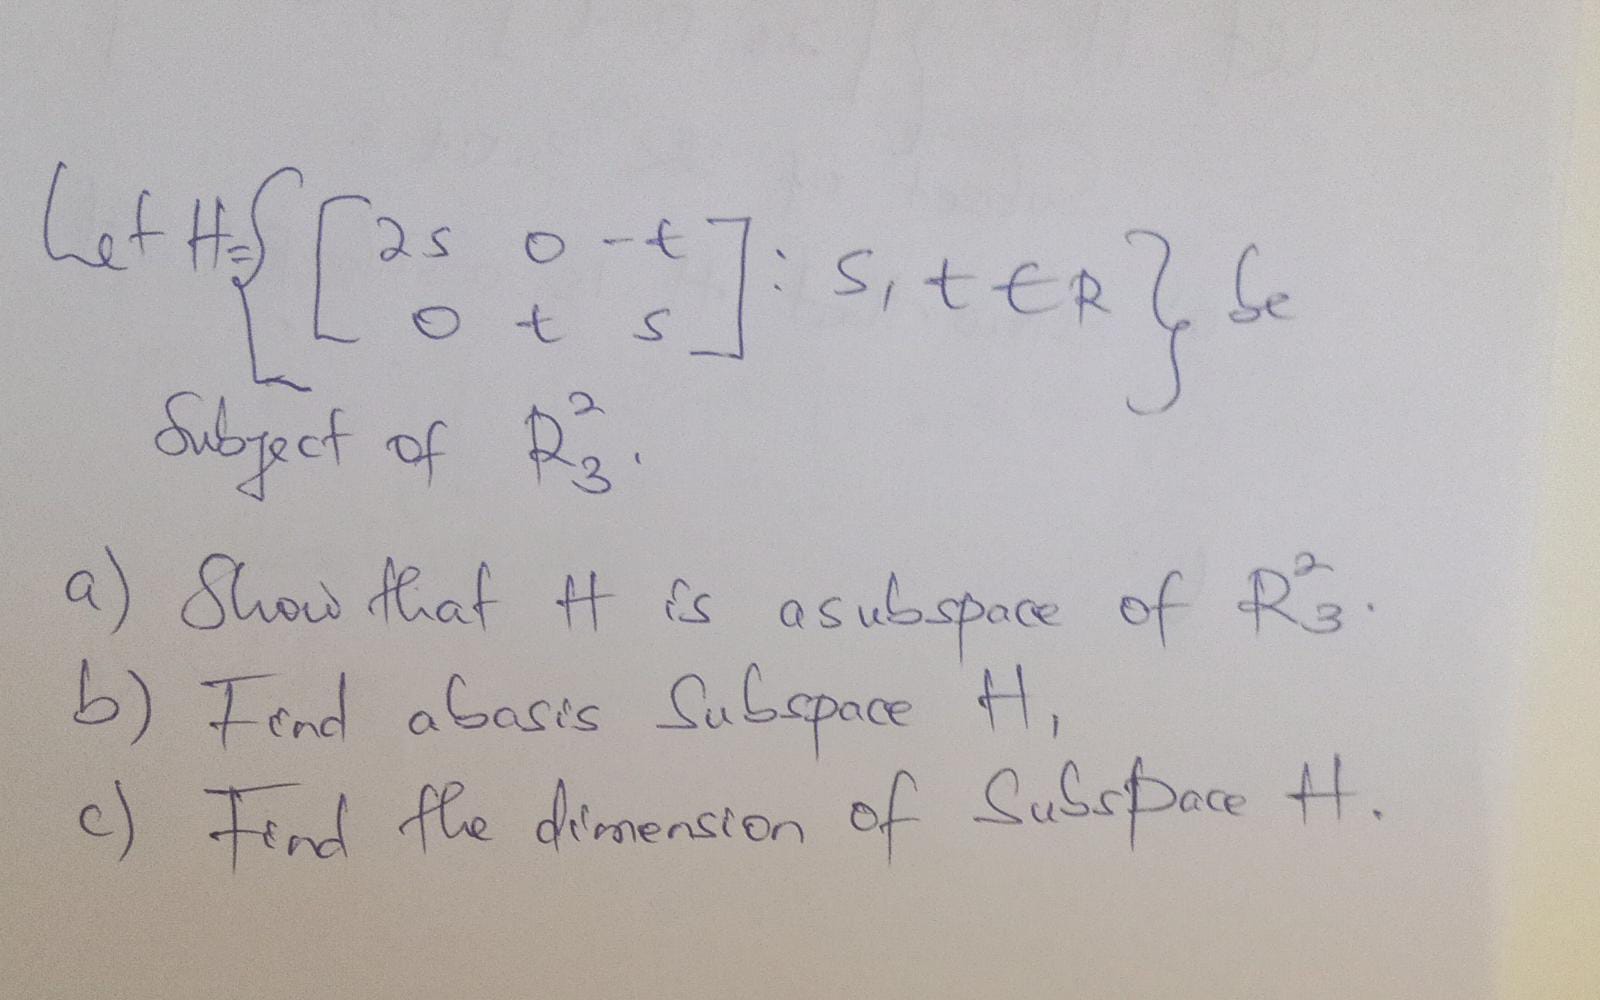 Let H = { [ 2s 0 -t
0 t s ] : s, t ∈ R } be
Subject of R²₃.
a) Show that H is a subspace of R²₃.
b) Find a basis Subspace H,
c) Find the dimension of Subspace H.